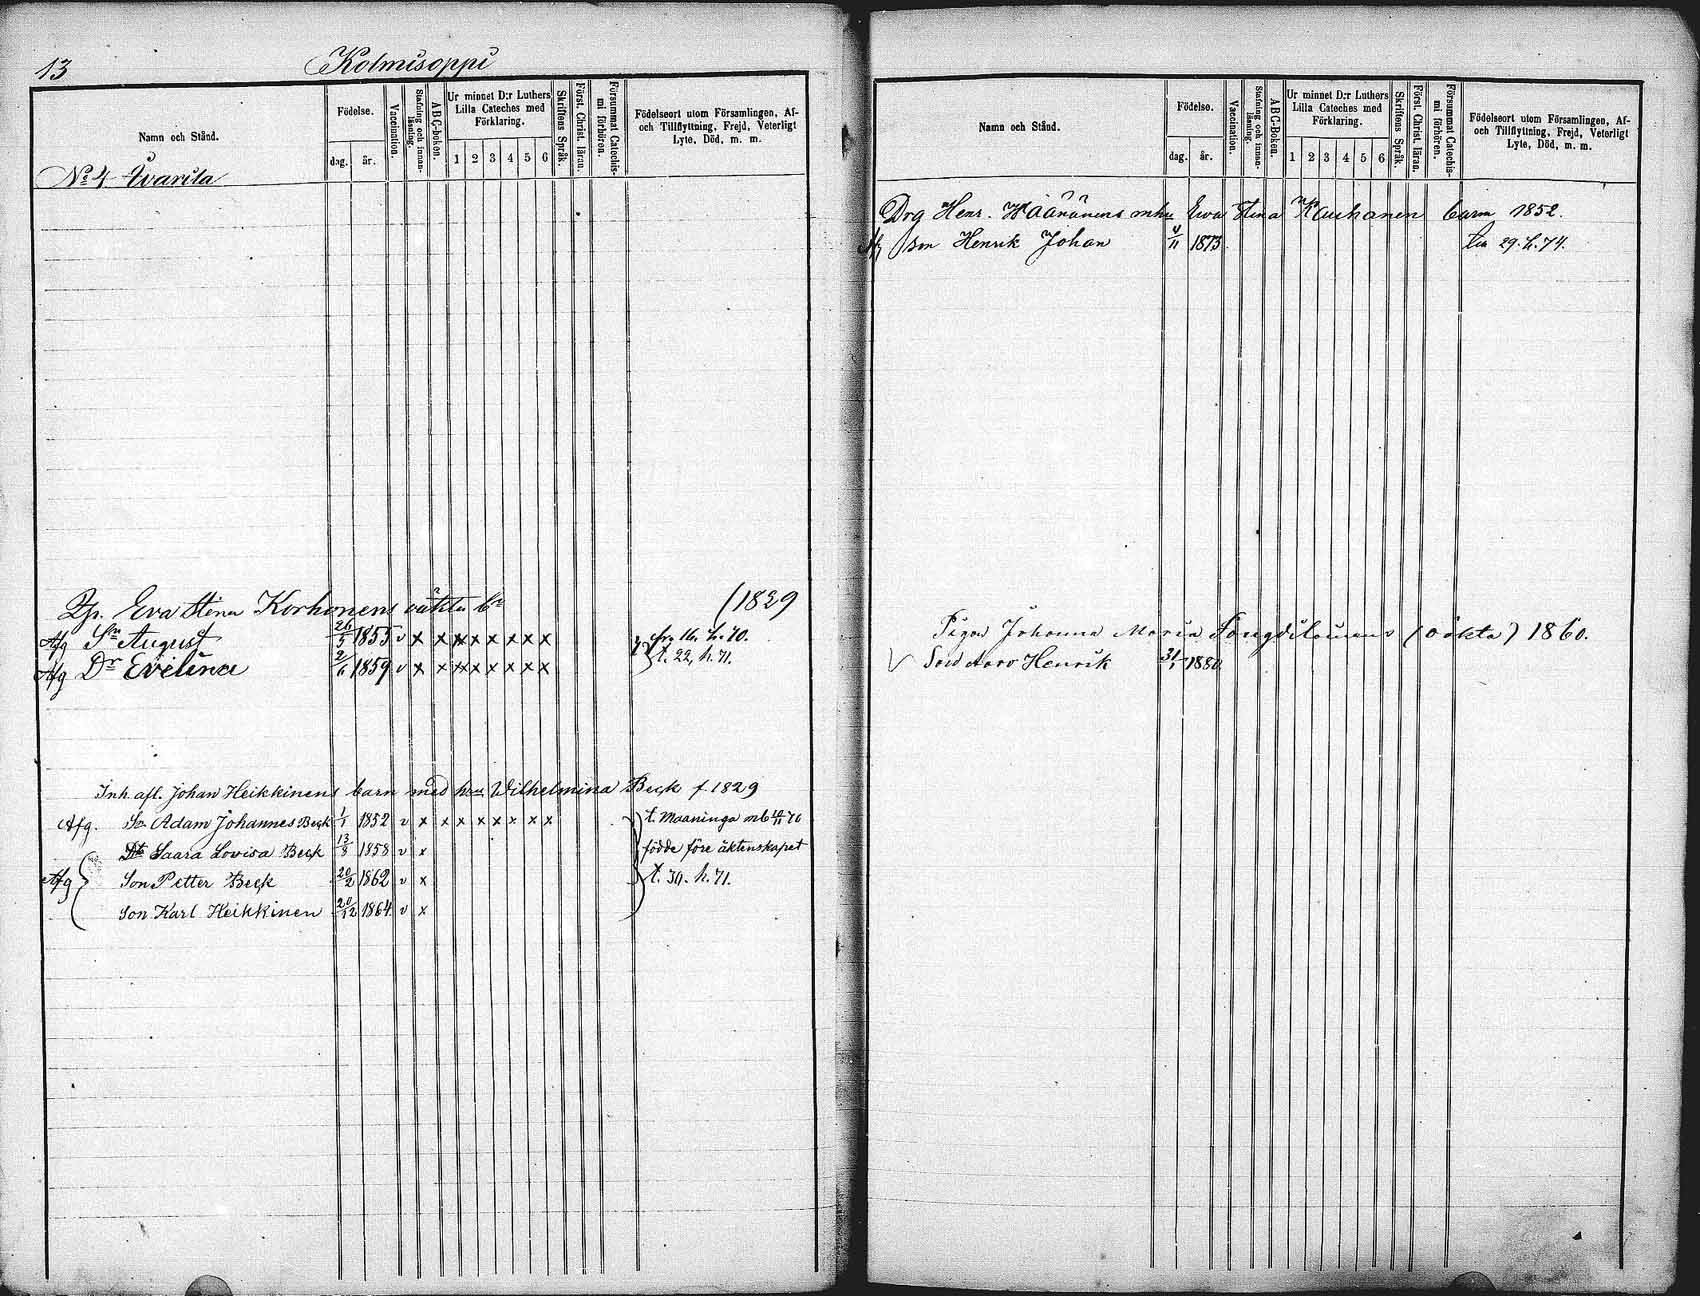 13 Kolmisoppi
Namn och Stånd.
Födelse.
dag. år.
Vaccination.
Stafning och innanläsning.
ABC-boken.
Ur minnet D:r Luthers Lilla Cateches med Förklaring.
1 2 3 4 5 6
Skriftens Språk.
Först. Christ. läran.
Försummat Catechismi förhören.
Födelseort utom Församlingen, Af- och Tillflyttning, Frejd, Veterligt Lyte, Död, m. m.
No 4 Warila
Eva Stina Korhonens oäkta (1829
Afg Sn August 26/5 1855 v x x x x x x x x
Afg Dr Evelina 2/6 1859 v x x x x x x x x t. 22, h. 71.
Inh. afl. Johan Heikkinens barn med hu Wilhelmina Beck f 1829
Afg. So Adam Johannes Beck 1/1 1852 v x x x x x x x x t. Maaninga
Dtr Saara Lovisa Beck 13/8 1858 v x födde före äktenskapet
Afg Son Petter Beck 20/2 1862 v x t. 30. h. 71.
Son Karl Heikkinen 20/12 1864 v x
Namn och Stånd.
Födelse.
dag. år.
Vaccination.
Stafning och innanläsning.
ABC-Boken.
Ur minnet D:r Luthers Lilla Cateches med Förklaring.
1 2 3 4 5 6
Skriftens Språk.
Först. Christ. läran.
Försummat Catechismi förhören.
Födelseort utom Församlingen, Af- och Tillflyttning, Frejd, Veterligt Lyte, Död, m. m.
Drg Henr. Wäänänens Ewa Stina Kauhanen barn 1852.
son Henrik Johan 1873 29. h. 74.
Pigan Johanna Maria (oäkta) 1860.
Son Aaro Henrik 31/1 1880